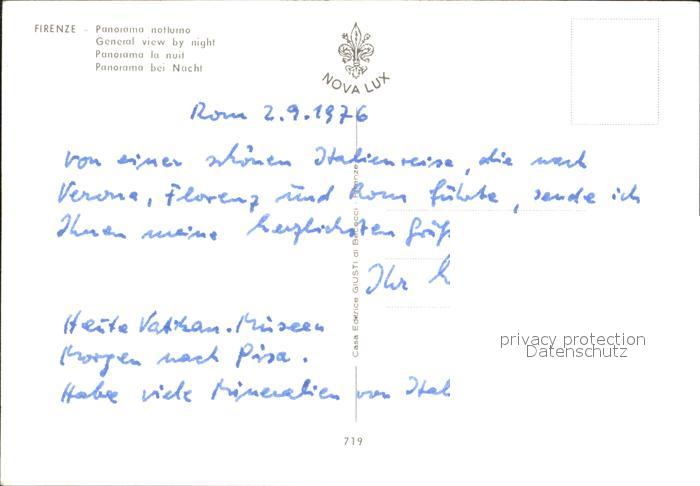 FIRENZE - Panorama notturno
General view by night
Panorama la nuit
Panorama bei Nacht
NOVA LUX
Rom 2.9.1976
von einer schönen Italienreise, die nach
Verona, Florenz und Rom führte, sende ich
Ihnen meine herzlichsten Grüß
Ihr
Heute Vatikan. Museen
Morgen nach Pisa.
Habe viele Mineralien von Ital
Casa Editrice GIUSTI di Firenze
719
privacy protection
Datenschutz